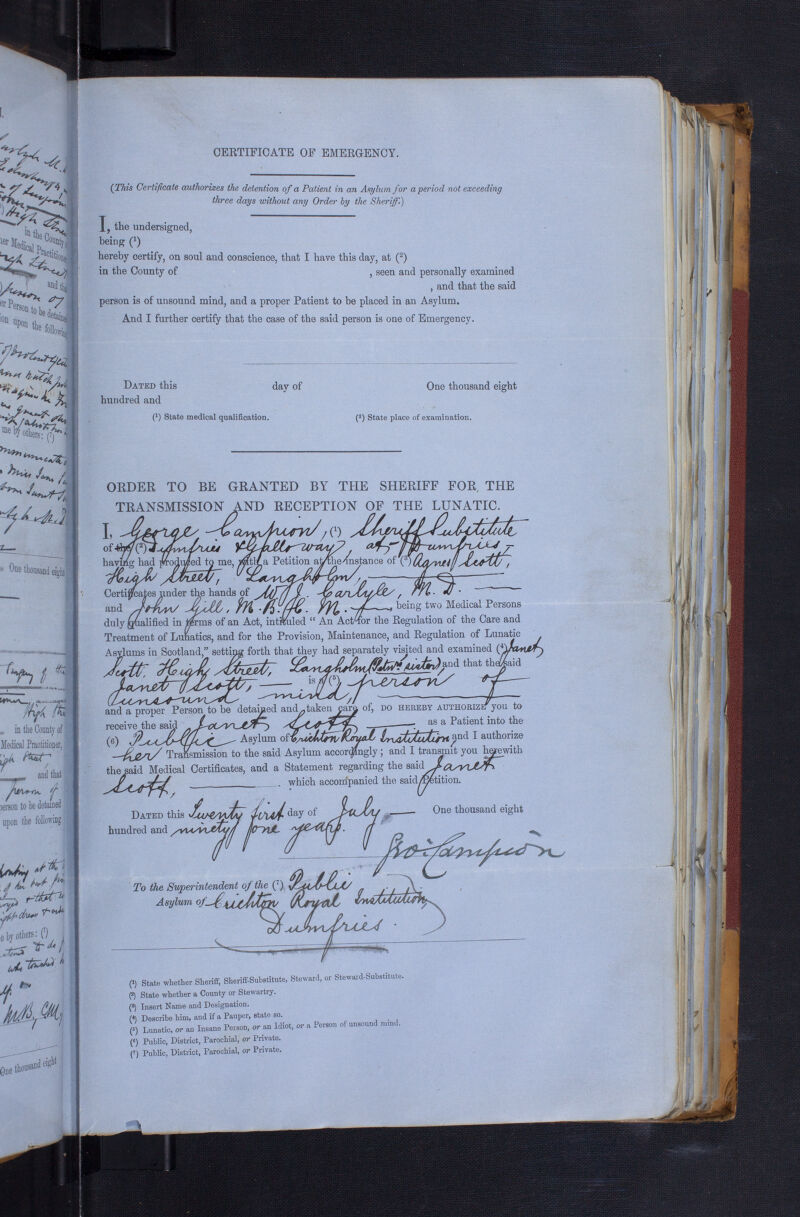 CERTIFICATE OF EMERGENCY.
(This Certificate authorizes the detention of a Patient in an Asylum for a period not exceeding
three days without any Order by the Sheriff.)
I, the undersigned,
being (1)
hereby certify, on soul and conscience, that I have this day, at (2)
in the County of , seen and personally examined
, and that the said
person is of unsound mind, and a proper Patient to be placed in an Asylum.
And I further certify that the case of the said person is one of Emergency.
DATED this day of One thousand eight
hundred and
(1) State medical qualification. (2) State place of examination.
ORDER TO BE GRANTED BY THE SHERIFF FOR THE
TRANSMISSION AND RECEPTION OF THE LUNATIC.
I, George Campion, (1) Sheriff Substitute
of the (2) Dumfries & Galloway, at Dumfries
having had produced to me, with a Petition at the instance of (3) Agnes Scott,
High Street, Langholm,
Certificates under the hands of W. J. Carlyle, M. D.
and John Gill, M. B. C. M. , being two Medical Persons
duly qualified in terms of an Act, intituled “ An Act for the Regulation of the Care and
Treatment of Lunatics, and for the Provision, Maintenance, and Regulation of Lunatic
Asylums in Scotland,” setting forth that they had separately visited and examined (4) Janet
Scott, High Street, Langholm (Petnrs sister) and that the said
Janet Scott, is a (5) person of
unsound mind,
and a proper Person to be detained and taken care of, DO HEREBY AUTHORIZE you to
receive the said Janet Scott as a Patient into the
(6) Public Asylum of Crichton Royal Institution and I authorize
her Transmission to the said Asylum accordingly ; and I transmit you herewith
the said Medical Certificates, and a Statement regarding the said Janet
Scott, which accompanied the said Petition.
DATED this Twenty first day of July One thousand eight
hundred and ninety one years.
Geo: Campion
To the Superintendent of the (7) Public
Asylum of Crichton Royal Institution,
Dumfries.
(1) State whether Sheriff, Sheriff-Substitute, Steward, or Steward-Substitute.
(2) State whether a County or Stewartry.
(3) Insert Name and Designation.
(4) Describe him, and if a Pauper, state so.
(5) Lunatic, or an Insane Person, or an Idiot, or a Person of unsound mind.
(6) Public, District, Parochial, or Private.
(7) Public, District, Parochial, or Private.